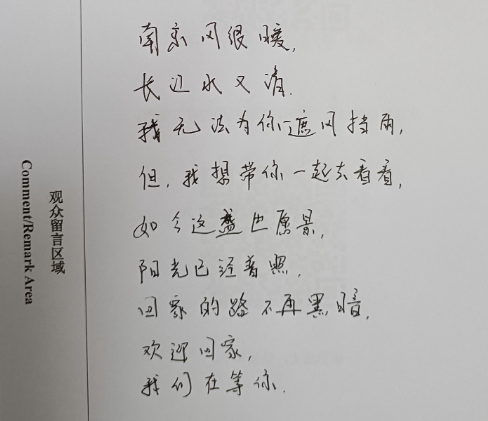 南京风很暖,
长江水又清.
我无法为你遮风挡雨,
但,我想带你一起去看看,
如今这盛世愿景,
阳光已经普照.
回家的路不再黑暗,
欢迎回家,
我们在等你.
观众留言区域
Comment/Remark Area